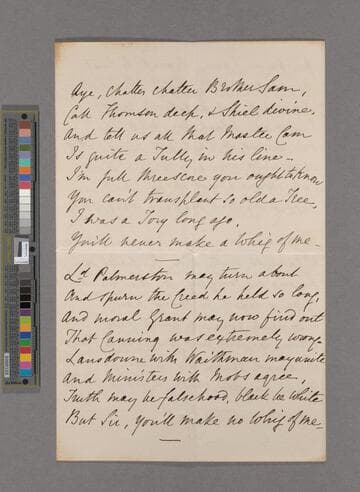 Aye, chatter chatter Brother Sam,
Call Thomson deep, & Shiel divine,
And tell us all that Master Cam
Is quite a Tully in his line -
I'm full threescore you ought to know
You can't transplant so old a Tree,
I was a Tory long ago,
You'll never make a Whig of me -
Ld Palmerston may turn about
And spurn the Creed he held so long,
And moral Grant may now find out
That Canning was extremely wrong
Lansdowne with Waithman may unite
And Ministers with Mobs agree,
Truth may be falsehood, black be White
But Sir, you'll make no Whig of me -